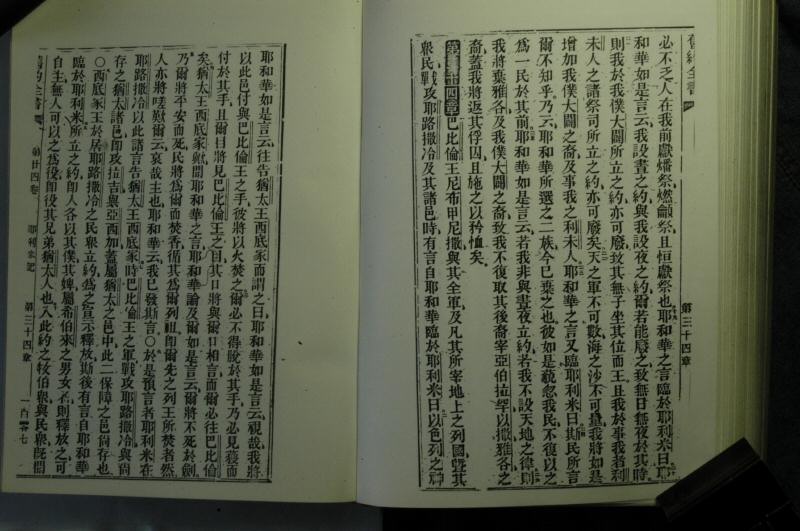 舊約全書
第三十四章
必不乏人在我前獻燔祭燃䬣祭且恒獻祭也耶和華之言臨於耶利米曰耶
和華如是言云我設晝之約與我設夜之約爾若能廢之致無日無夜於其時
則我於我僕大闢所立之約亦可廢致其無子坐其位而王且我於事我者利
未人之諸祭司所立之約亦可廢矣天之軍不可數海之沙不可量我將如是
增加我僕大闢之裔及事我之利未人耶和華之言又臨耶利米曰斯民所言
爾不知乎乃云耶和華所選之二族今已棄之也彼如是藐忽我民不復以之
為一民於其前耶和華如是言云若我非與晝夜立約若我不設天地之律則
我將棄雅各及我僕大闢之裔致我不復取其後裔宰亞伯拉罕以撒雅各之
裔蓋我將返其俘囚且施之以矜恤矣
第三十四章巴比倫王尼布甲尼撒與其全軍及凡其所宰地上之列國暨其
眾民戰攻耶路撒冷及其諸邑時有言自耶和華臨於耶利米曰以色列之神
耶和華如是言云往告猶太王西底家而謂之曰耶和華如是言云視哉我將
以此邑付與巴比倫王之手彼將以火焚之爾必不得脫於其手乃必見獲而
付於其手且爾目將見巴比倫王之目其口將與爾口相言而爾必往巴比倫
矣猶太王西底家歟聞耶和華之言耶和華論及爾如是言云爾將不死於劍
乃爾將平安而死民將為爾而焚香循其為爾列祖即爾先之列王所焚者然
人亦將嗟嘆爾云哀哉主也耶和華云我已發斯言○於是預言者耶利米在
耶路撒冷以此諸言告猶太王西底家時巴比倫王之軍戰攻耶路撒冷與尚
存之猶太諸邑即攻拉吉與亞西加蓋屬猶太之邑中此二保障之邑尚存也
○西底家王於居耶路撒冷之民眾立約為之宣示釋放斯後有言自耶和華
臨於耶利米所立之約即人各以其僕其婢屬希伯來之男女者則釋放之可
自主無人可以之為役即役其兄弟猶太人也入此約之牧伯眾與民眾既聞
舊約全書
第廿四卷
耶利米記
第三十四章
一百零七